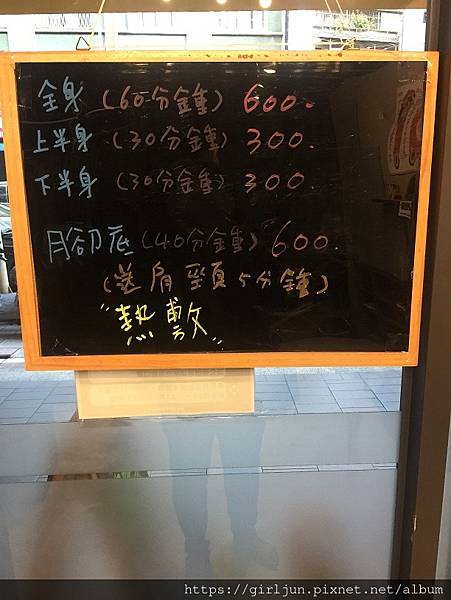 全身（60分鐘）600.
上半身（30分鐘）300.
下半身（30分鐘）300.
腳底（40分鐘）600.
（送肩頸5分鐘）
"熱敷"
https://girljun.pixnet.net/album